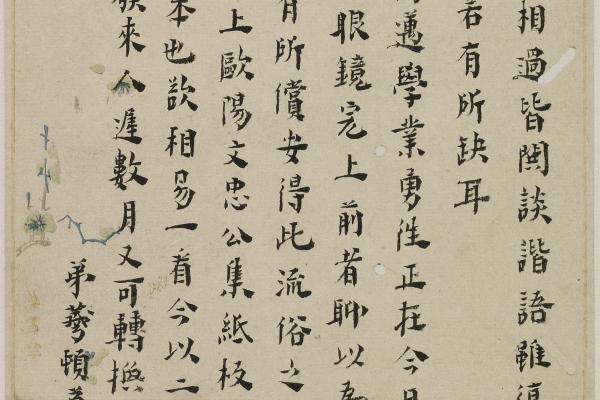 相過皆闊談諧語雖復
若有所缺耳
邁學業勇往正在今日
眼鏡完上前者聊以為
有所償安得此流俗之
上歐陽文忠公集紙板
本也欲相易一看今以二
來人遲數月又可轉撫
弟夢頓首